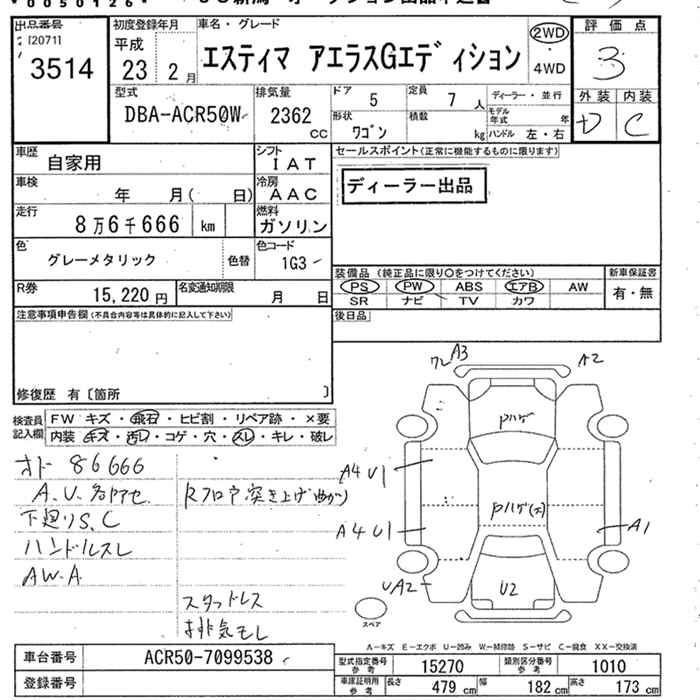 *0050126*
出品番号
120711
3514
初度登録年月
平成
23 2 月
車名・グレード
エスティマ アエラスGエディション
2WD
・
4WD
評価点
3
外装 内装
D C
型式
DBA-ACR50W
排気量
2362
cc
ドア 5
定員 7 人
形状 ワゴン
積載 kg
ディーラー・並行
モデル年式 年
ハンドル 左・右
車歴 自家用
シフト IAT
車検 年 月( 日)
冷房 AAC
走行 8万6千666 km
燃料 ガソリン
色 グレーメタリック
色替
色コード 1G3
R券 15,220 円
名変通知期限 月 日
セールスポイント(正常に機能するものに限ります)
ディーラー出品
装備品(純正品に限り○をつけてください)
PS PW ABS エアB AW
SR ナビ TV カワ
新車保証書
有・無
後日品
注意事項申告欄(不具合内容等は具体的に記入して下さい)
修復歴 有〔箇所 〕
検査員記入欄
FW キズ・飛石・ヒビ割・リペア跡・×要
内装・キズ・汚レ・コゲ・穴・スレ・キレ・破レ
オド 86666
A.U.名アセ
下廻りS.C
ハンドルスレ
AW.A
Rフロア突き上げ曲がり
スタッドレス
排気モレ
ワレ A3
A2
Pハゲ
A4 U1
Pハゲ(大)
A4 U1
A1
UA2
U2
スペア
A－キズ E－エクボ U－凹み W－補修跡 S－サビ C－腐食 XX－交換済
車台番号 ACR50-7099538
登録番号
型式指定番号参考 15270
類別区分番号参考 1010
車庫証明用参考 長さ 479 cm 幅 182 cm 高さ 173 cm